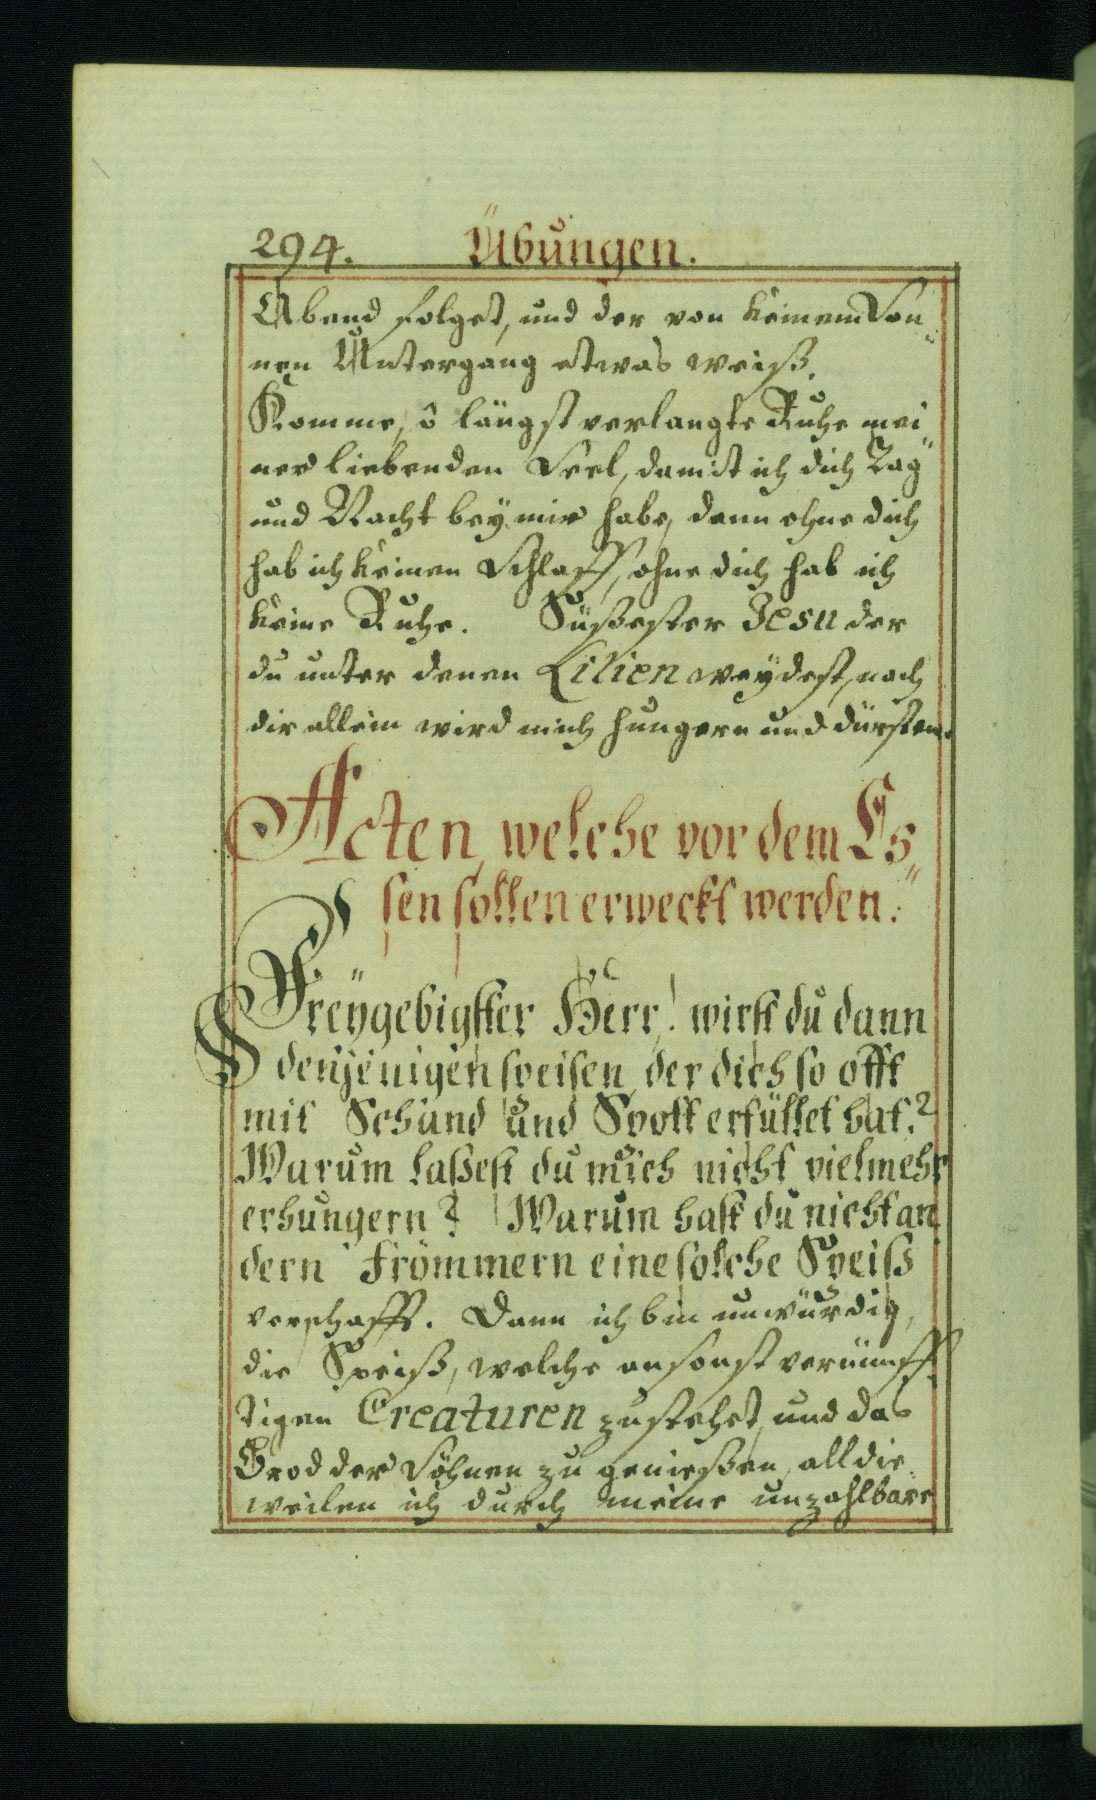 294. Übungen.
Abend folget, und der von keinem Son„
nen Untergang etwas weiß.
Komme, ô längst verlangte Ruhe mei„
ner liebenden Seel, damit ich dich Tag
und Nacht beÿ mir habe, dann ohne dich
hab ich keinen Schlaff, ohne dich hab ich
keine Ruhe. Süßester Jesu der
du unter denen Lilien weÿdest, nach
dir allein wird mich hungern und dürsten.
Acten, welche vor dem Es„
sen sollen erweckt werden.
Freÿgebigster Herr! wirst du dann
denjenigen speisen, der dich so offt
mit Schand und Spott erfüllet hat?
Warum laßest du mich nicht vielmehr
erhungern? Warum hast du nicht an„
dern Frömmern eine solche Speiß
verschafft. Dann ich bin unwürdig,
die Speiß, welche ansonst vernünff„
tigen Creaturen zustehet, und das
Brod der Söhnen zu genießen, alldie„
weilen ich durch meine unzahlbare